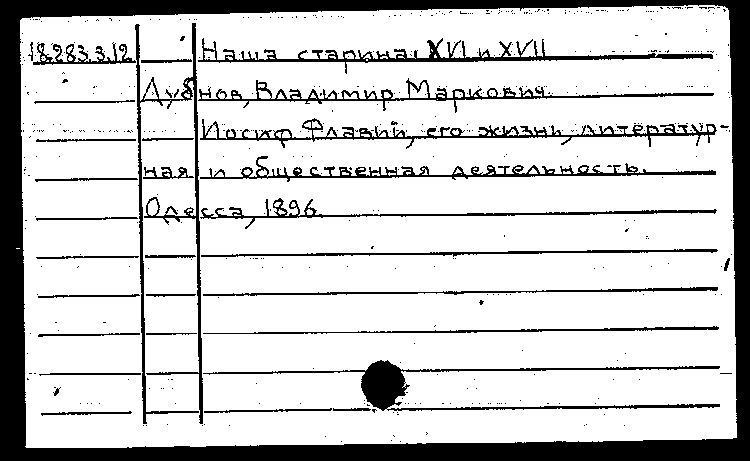 18.283.3.12 Наша старина: XVI и XVII
Дубнов, Владимир Маркович.
Иосиф Флавий, его жизнь, литератур-
ная и общественная деятельность.
Одесса, 1896.